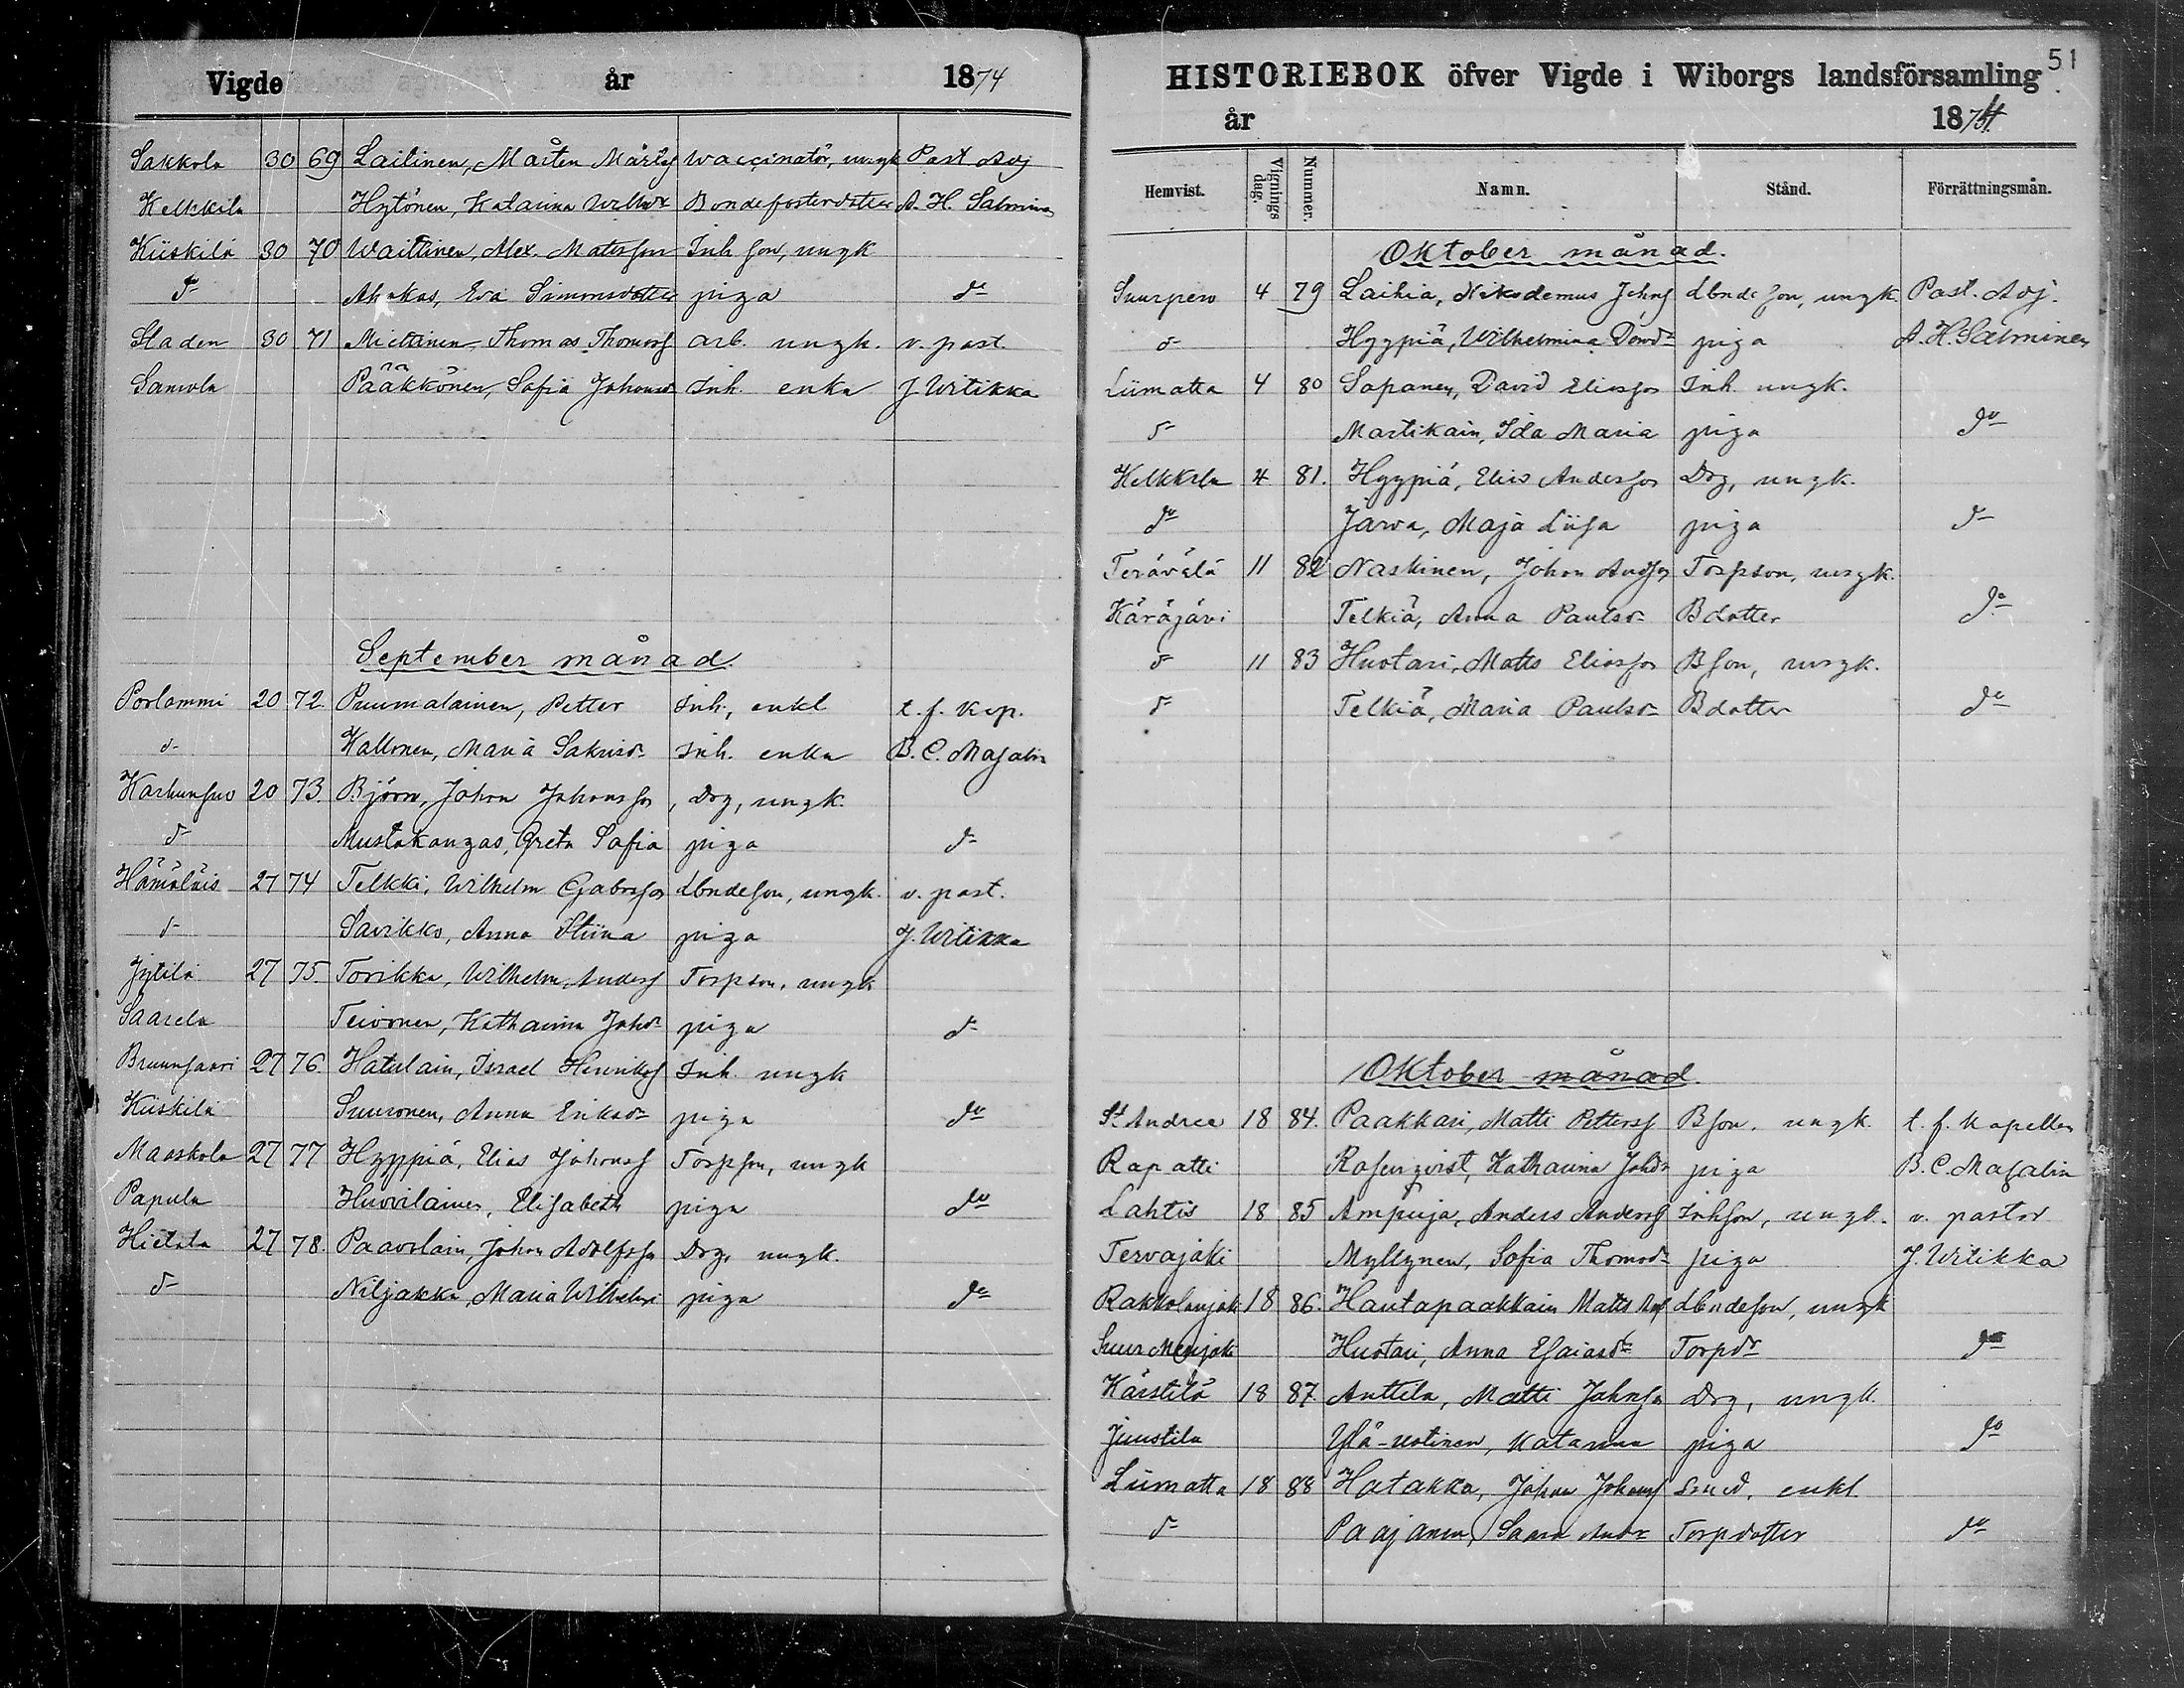 Vigde år 1874
Sakkola 30 69 Laitinen, Mårten Mårts vaccinatör, ungk Past. Adj
Kelkkila Hytönen, Katarina Wilhdr Bondefosterdotter A. H. Salminen
Kiiskilä 30 70 Waittinen, Alex. Matsson Inh son, ungk
do Ahokas, Eva Simonsdotter piga do
Staden 30 71 Miettinen, Thomas Thomass arb. ungk. v. past.
Samola Pääkkönen, Sofia Johansd Inh. enka J. Witikka
September månad.
Porlammi 20 72. Puumalainen, Petter Inh, enkl t. f. Kap.
do Kallonen, Maria Sakrisdr Inh. enka B. C. Masalin
Karhunsuo 20 73. Björn, Johan Johansson, Drg, ungk.
do Mustakangas, Greta Sofia piga do
Hämäläis 27 74 Telkki, Wilhelm Gabrson Lbndeson, ungk. v. past.
do Savikko, Anna Stiina piga J. Witikka
Jytilä 27 75. Torikka, Wilhelm Anders Torpson, ungk
Saarela Teivonen, Katharina Johdr piga do
Bruunsaari 27 76. Hatulain, Israel Henriks Inh. ungk
Kiiskilä Suuronen, Anna Eriksdr piga do
Maaskola 27 77 Hyppiä, Elias Johanss Torpson, ungk
Papula Huovilainen, Elisabeth piga do
Hietala 27 78. Paavolain, Johan Adolfsson Drg, ungk.
do Niljakka, Maria Wilhelmi piga do
51
HISTORIEBOK öfver Vigde i Wiborgs landsförsamling
år 1874.
Hemvist. Vignings dag. Nummer. Namn. Stånd. Förrättningsmän.
Oktober månad.
Suurpero 4 79 Laihia, Nikodemus Johns Lbndeson, ungk. Past. Adj.
do Hyypiä, Wilhelmina Davdr piga A. H. Salminen
Liimatta 4 80 Sapanen, David Eliasson Inh. ungk.
do Martikain, Ida Maria piga do
Kelkkala 4 81. Hyypiä, Elias Andersson Drg, ungk.
do Jarva, Maja Liisa piga do
Terävälä 11 82 Naskinen, Johan Andson Torpson, ungk.
Käräjävi Telkiä, Anna Paulsdr Bdotter do
do 11 83 Huotari, Matts Eliasson Bson, ungk.
do Telkiä, Maria Paulsdr Bdotter do
Oktober månad.
St Andree 18 84. Paakkari, Matti Petterss Bson, ungk. t. f. Kapellan
Rapatti Rosenqvist, Katharina Johdr piga B. C. Masalin
Lahtis 18 85 Ampuja, Anders Anderss Inhson, ungk. v. pastor
Tervajoki Myllynen, Sofia Thomasdr piga J. Witikka
Rakkolanjoki 18 86. Hautapaakkain Matts Lbndeson, ungk
Suur Merijoki Huotari, Anna Esaiasdr Torpdr do
Kärstilä 18 87. Anttila, Matti Johnson Drg, ungk.
Juustila Ylä-Uotinen, Katarina piga do
Liimatta 18 88 Hatakka, Johan Johanss Smed, enkl.
do Paajanen, Saara Andr Torpdotter do